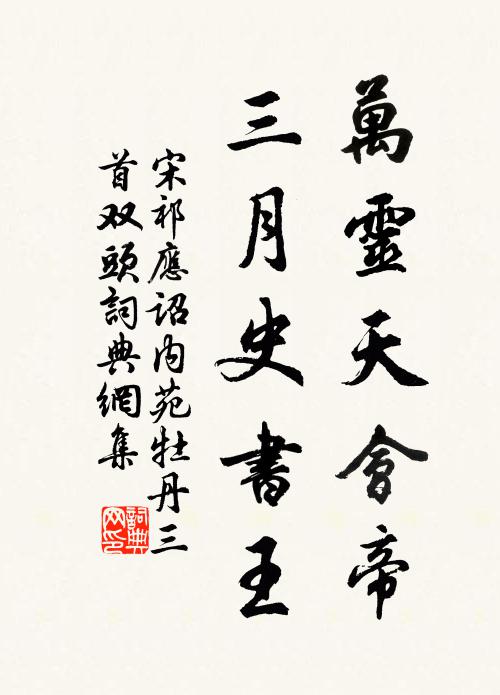 萬靈天會帝
三月史書王
宋祁應詔内苑牡丹三
首双頭詞典網集
詞典网印